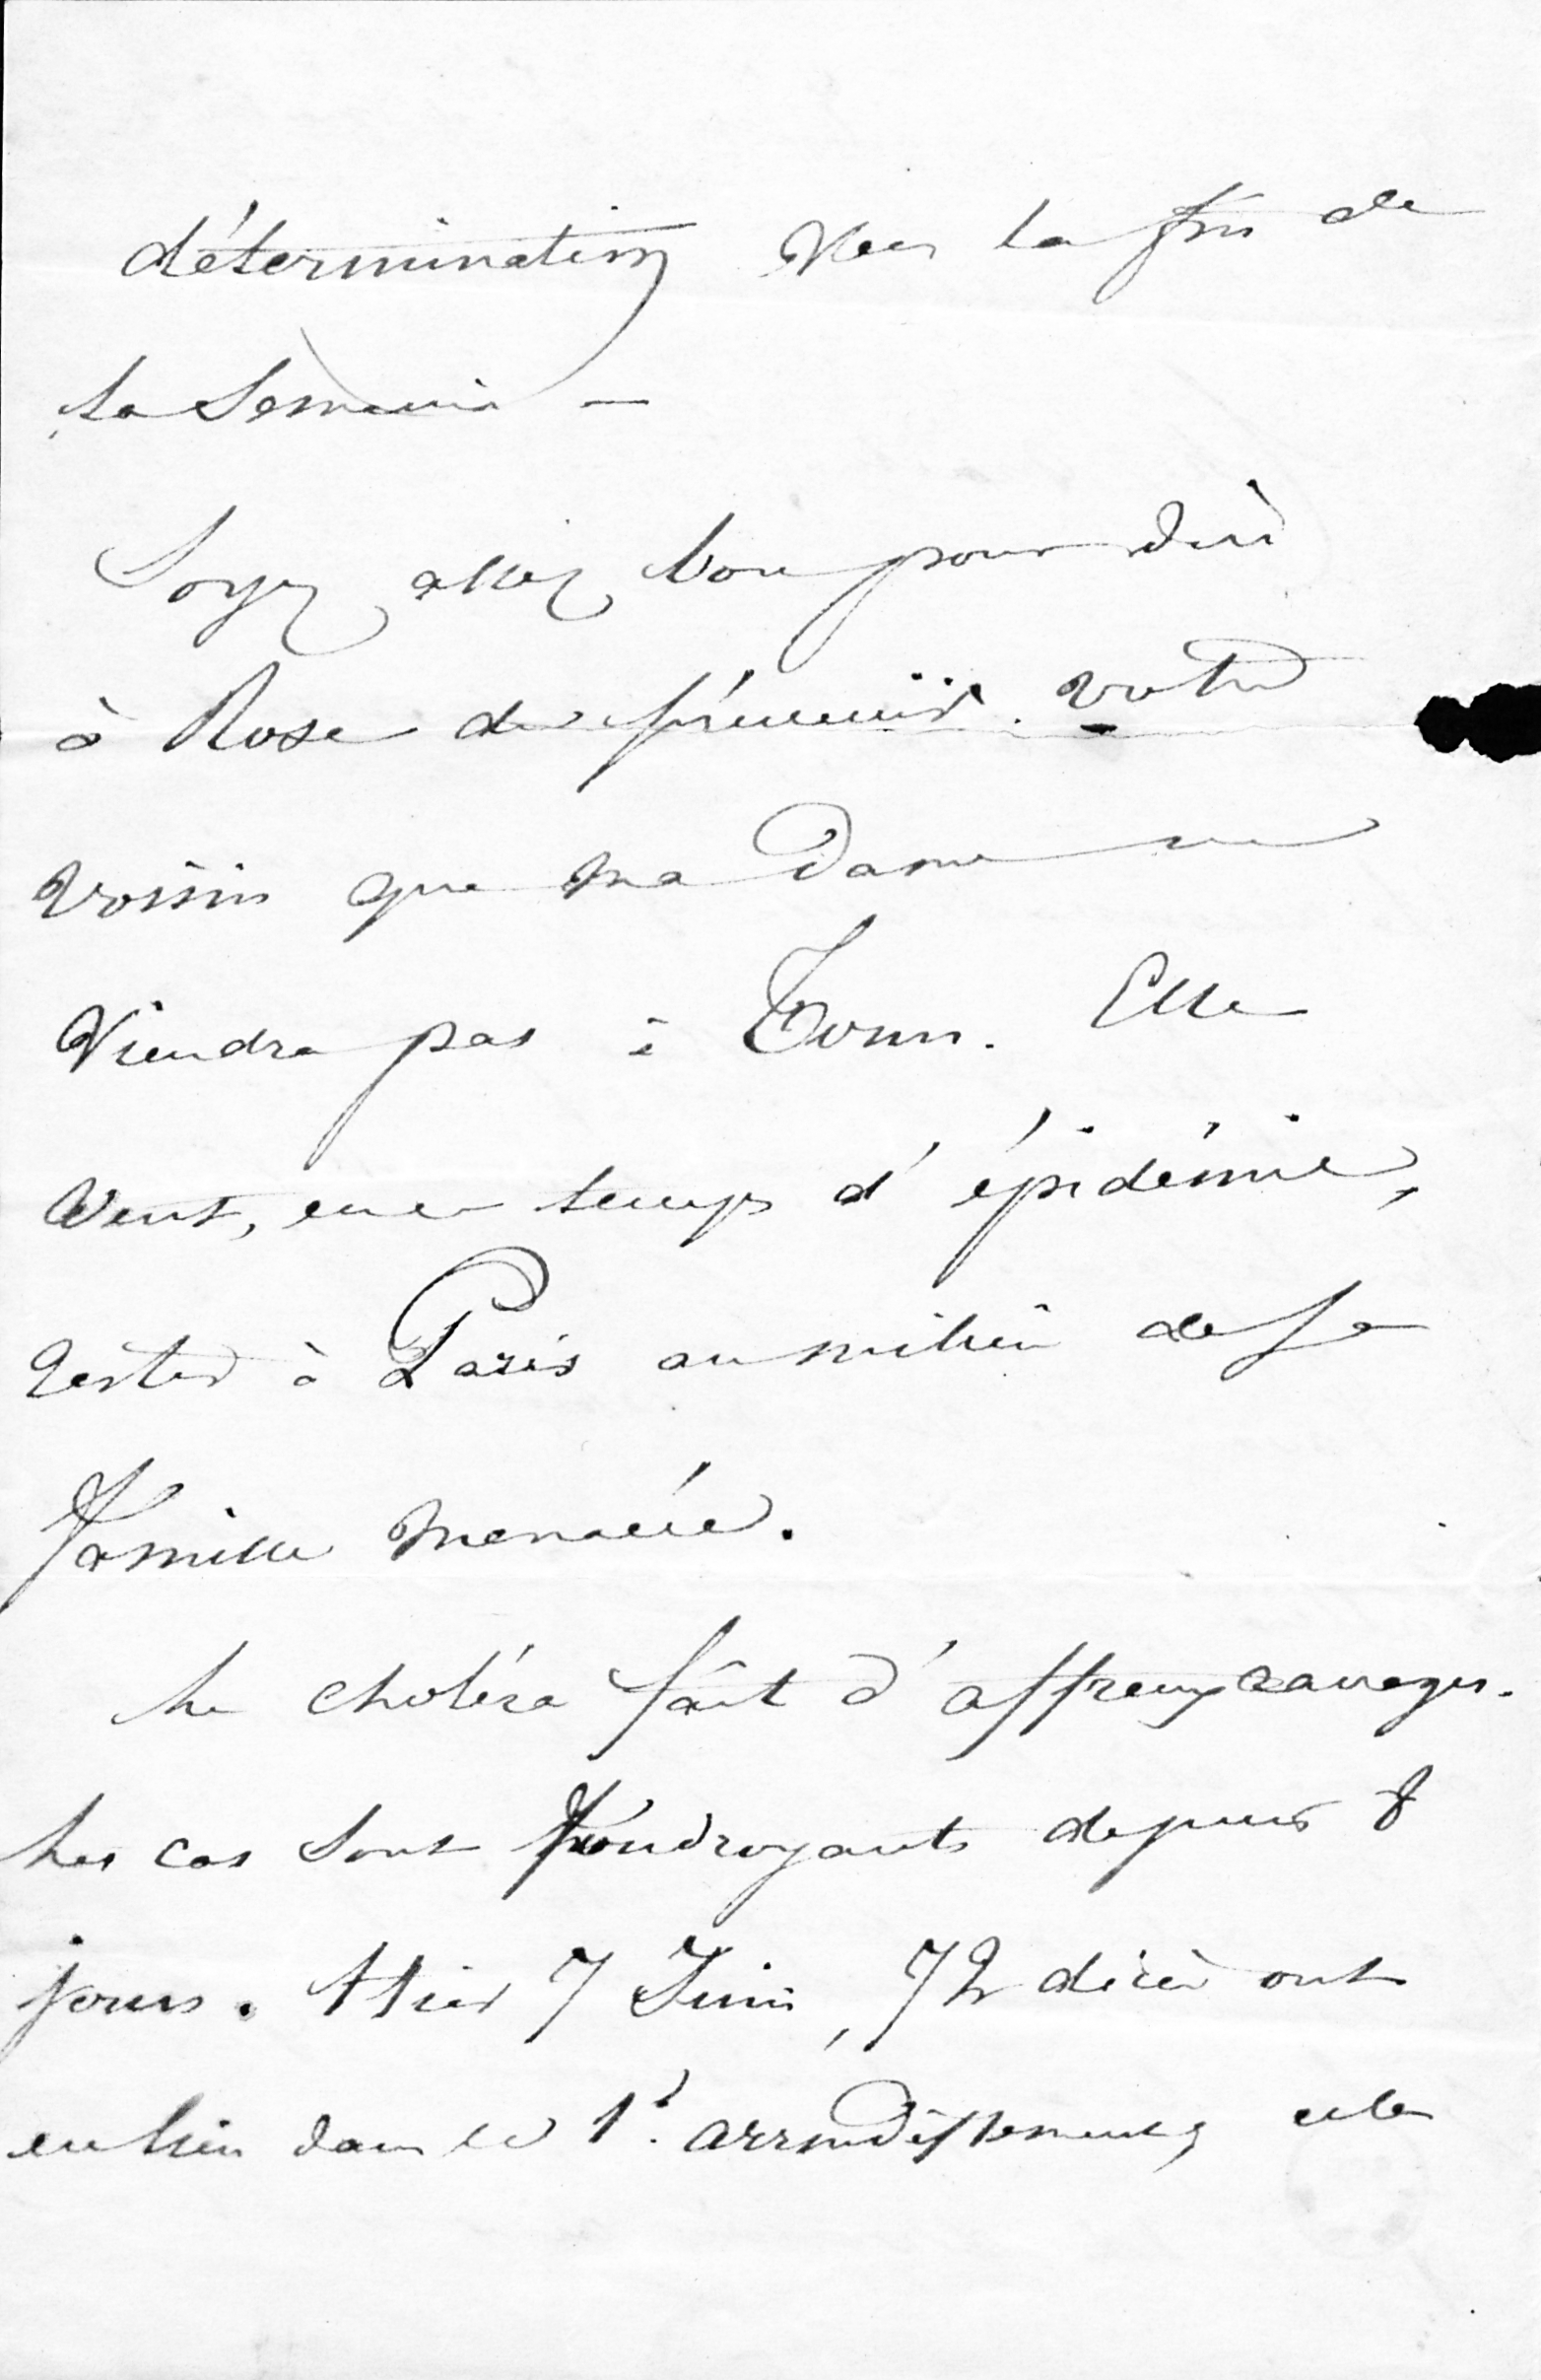 détermination vers la fin de
la semaine —
Soyez assez bon pour dire
à Rose de prévenir votre
voisin que ma Dame ne
viendra pas à Tours. Elle
veut, en ce temps d'épidémie,
rester à Paris au milieu de sa
famille menacée.
Le choléra fait d'affreux ravages.
Les cas sont foudroyants depuis 8
jours. Hier 7 Juin, 72 décès ont
eu lieu dans le 1er arrondissement,